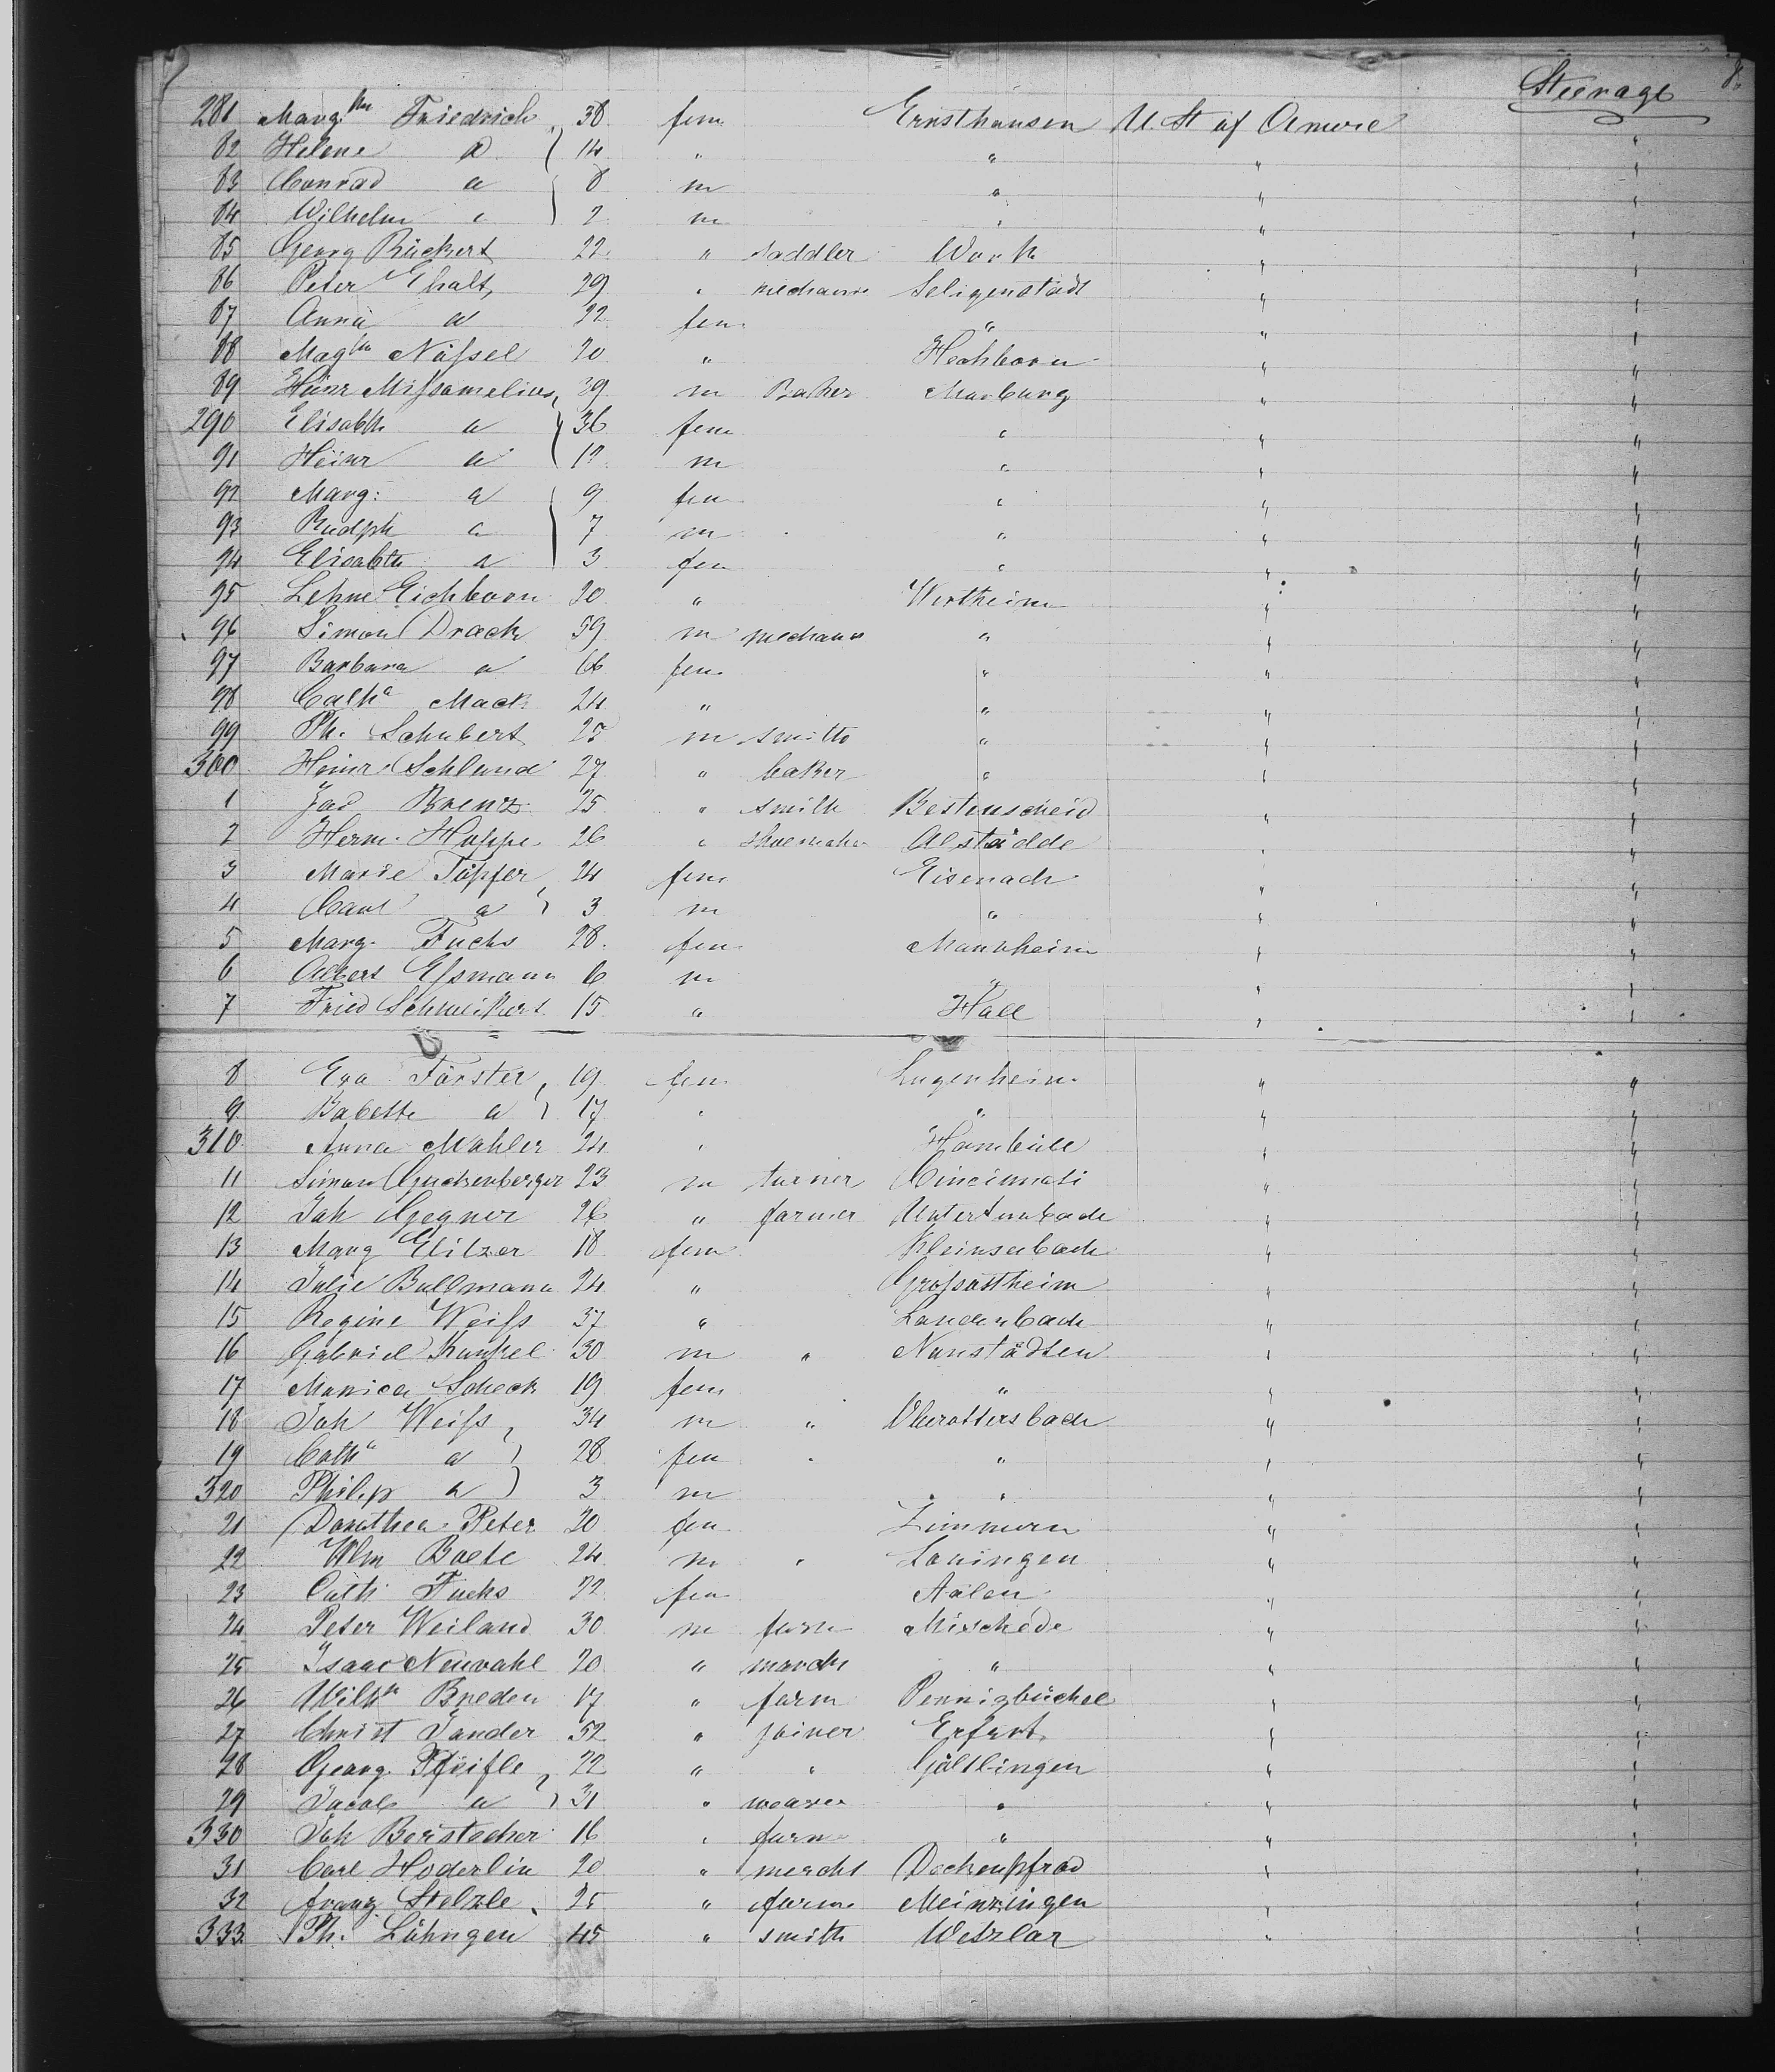 Steerage 8.
281 Marg.tha Friedrich 38 fem Ernsthausen U. St of Americ
82 Helene a 14 " " " "
83 Conrad a 8 m " " "
84 Wilhelm a 2 m " " "
85 Georg Rückert 22 " saddler Worth " "
86 Peter Ehalt, 29 " mechanic Seligenstadt " "
87 Anna a 22 fem " " "
88 Magtha Nüssel 20 " Hechborn " "
89 Heinr Missomelius, 39 m Baker Marburg " "
290 Elisabth a 36 fem " " "
91 Heinr a 12 m " " "
92 Marg: a 9 fem " " "
93 Rudph a 7 m " " "
94 Elisabth a 3 fem " " "
95 Lehne Eichborn 20 " Wertheim " "
96 Simon Drack 59 m mechanic " " "
97 Barbara a 66 fem " " "
98 Catha Mack 24 " " " "
99 Ph. Schubert 25 m smith " " "
300 Heinr Schlund 27 " baker " " "
1 Jac Brenz 25 " smith Bestenscheid " "
2 Herm. Hoppe 26 " shoemaker Alstädde " "
3 Marie Töpfer 24 fem Eisenach " "
4 Carl a 3 m " " "
5 Marg. Fuchs 28. fem Mannheim " "
6 Albert Essmann 6 m " "
7 Fried Schweikert 15 " Hall " "
8 Eva Förster, 19 fem Sugenheim " "
9 Babette a 17 " " " "
310 Anna Mahler 24 " Hambüll " "
11 Simon Guckenberger 23 m turner Cincinnati " "
12 Joh Gegner 26 " farmer " "
13 Marg Elitzer 18 fem Kleinseebach " "
14 Julie Bullmann 24 " Grossostheim " "
15 Regine Weiss 37 " Laudenbach " "
16 Gabriel Kunkel 30 m " Nanstädten " "
17 Monica Scheck 19 fem " " "
18 Joh Weiss, 34 m " Oberottersbach " "
19 Catha a 28 fem " " "
320 Philip a 3 m " " "
21 Dorothea Peter 20 fem Zimmern " "
22 Wlm Boele 24 m " Lauingen " "
23 Cath Fuchs 22 fem Aalen " "
24 Peter Weiland 30 m farm Mischede " "
25 Isaac Neuwahl 20 " march " " "
26 Wilhm Breden 17 " farm Pennigbüchel " "
27 Christ Vander 52 " joiner Erfurt " "
28 Georg Pfeifle 22 " " Gültlingen " "
29 Jacob a 31 " weaver " " "
330 Joh Berstecher 16 " farm " " "
31 Carl Hoderlin 20 " mercht Deckenpfrad " "
32 franz Stelzle 25 " farm Meinzingen " "
333 Ph. Löhngen 45 " smith Wetzlar " "